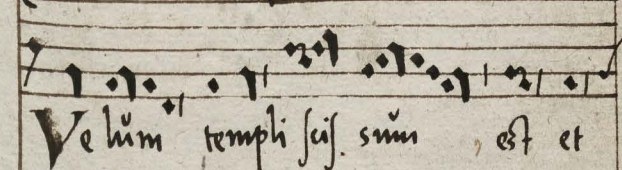 Ve lũm templi ſciſ. sũm est et